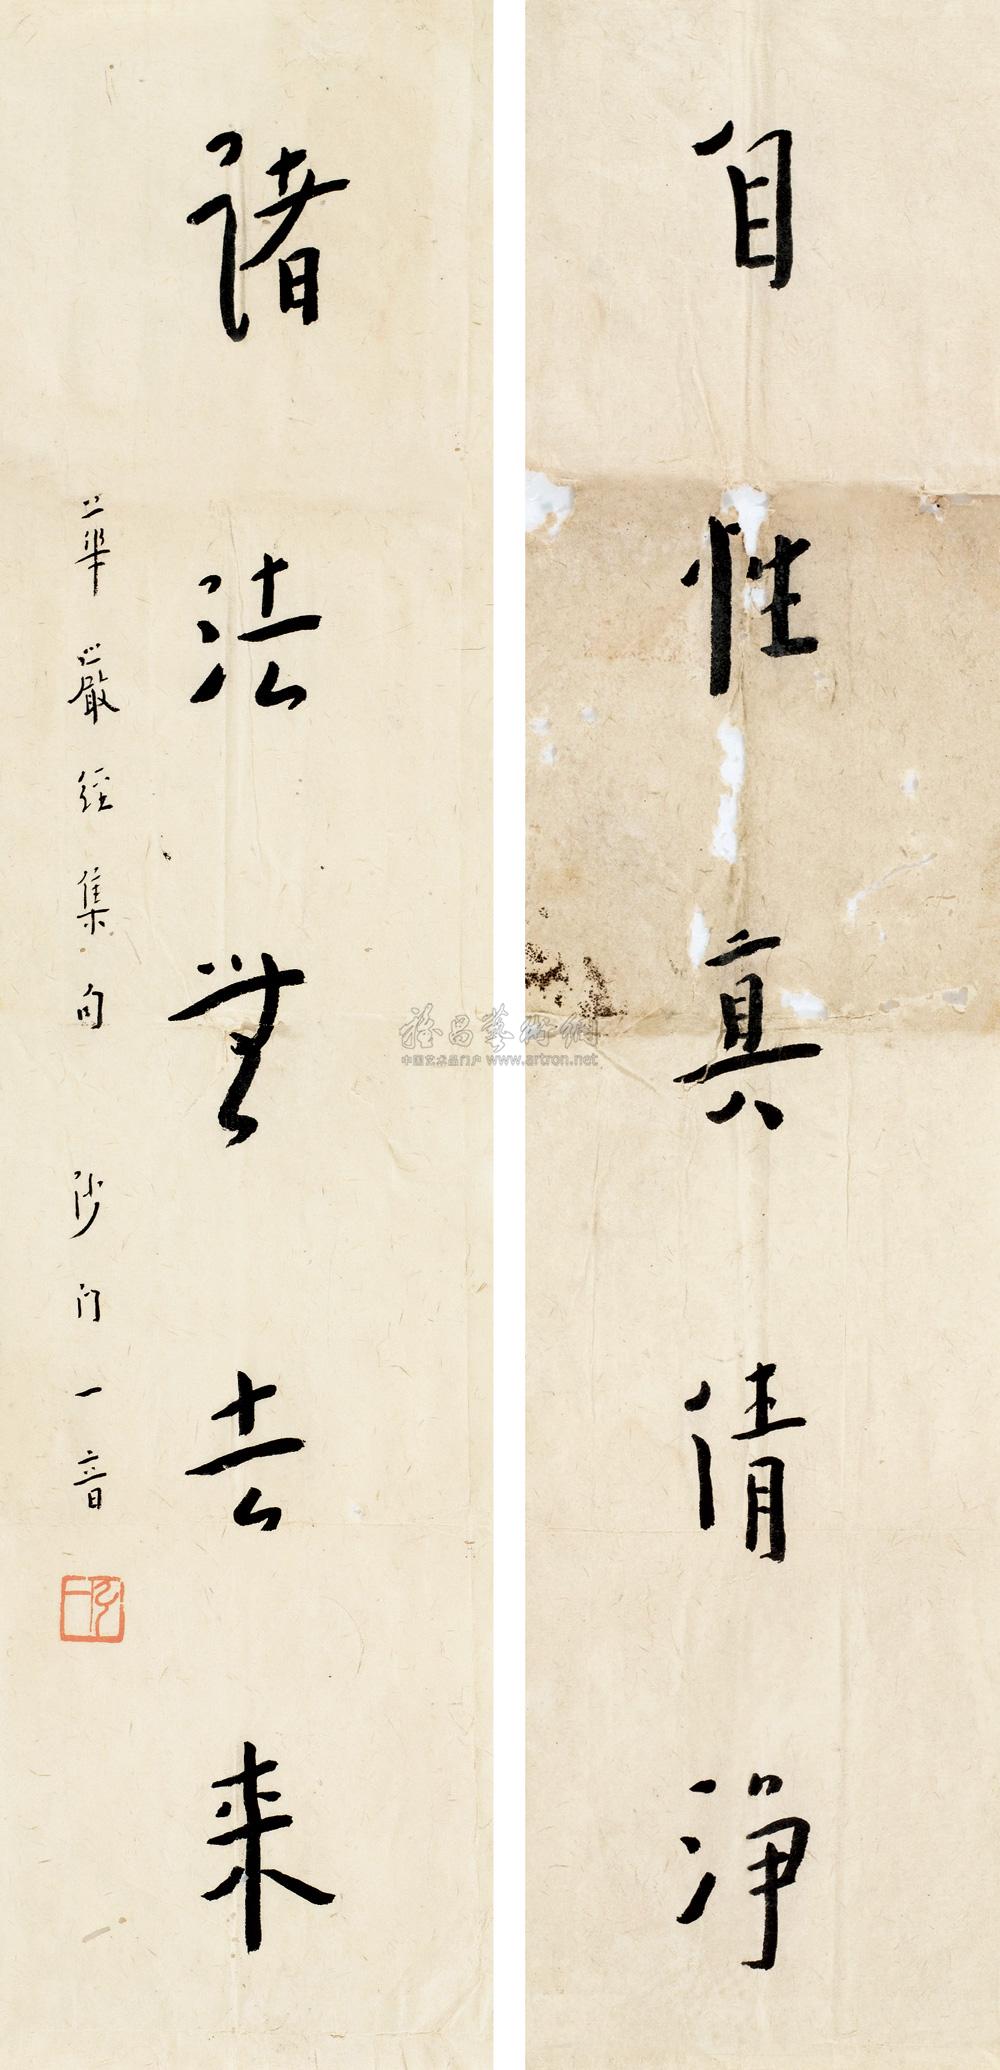 自性真清淨
諸法無去来
華嚴經集句 沙门一音
雅昌藝術網
中国艺术品门户 www.artron.net